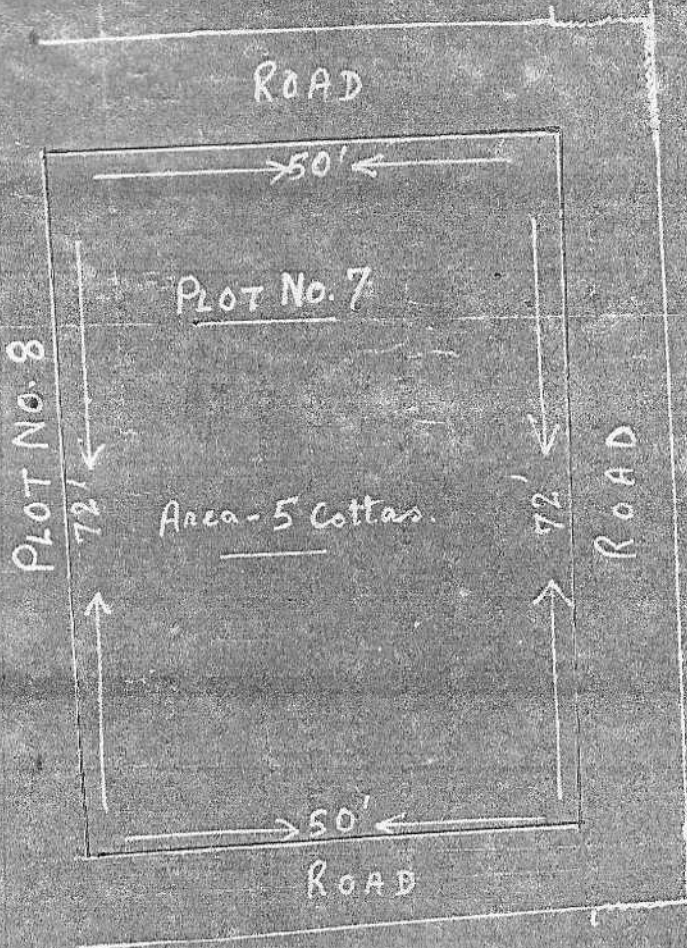 ROAD
50'
PLOT No. 7
PLOT NO. 8
72'
Area - 5 Cottas.
72'
ROAD
50'
ROAD